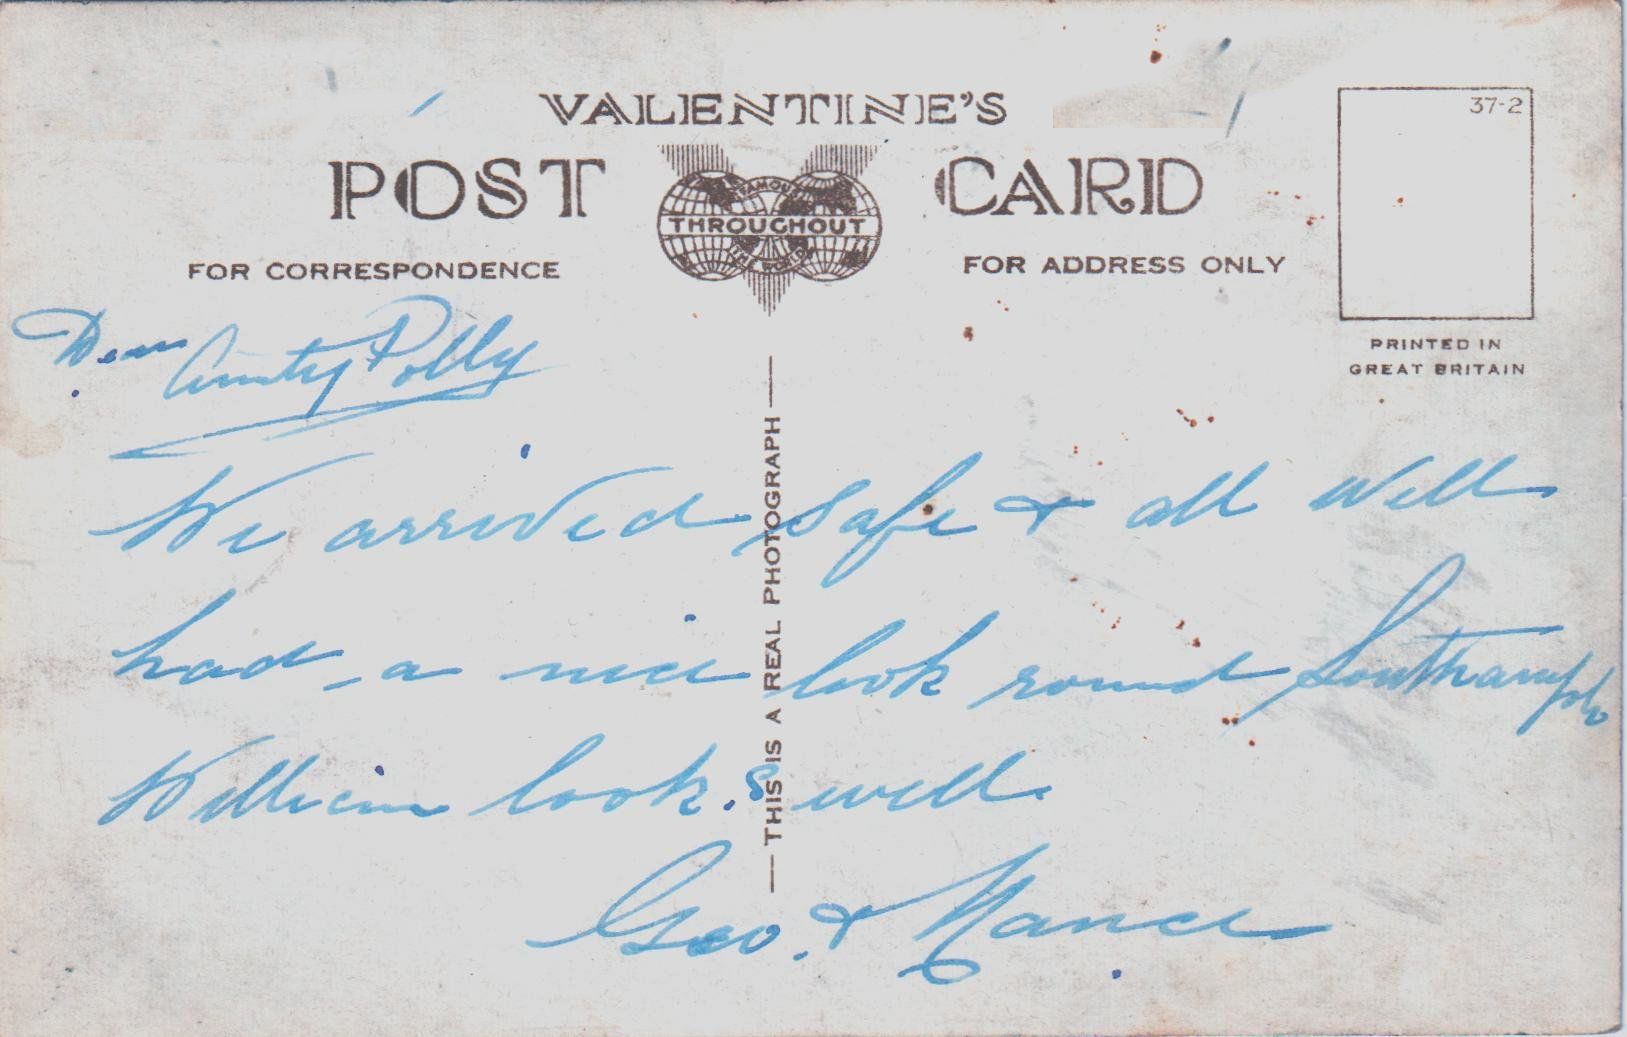 VALENTINE'S
POST CARD
FAMOUS
THROUGHOUT
THE WORLD
37-2
FOR CORRESPONDENCE
FOR ADDRESS ONLY
PRINTED IN
GREAT BRITAIN
THIS IS A REAL PHOTOGRAPH
Dear Aunty Polly
We arrived safe & all well
had a nice look round Southampto
William looks well.
Geo. & Nance.